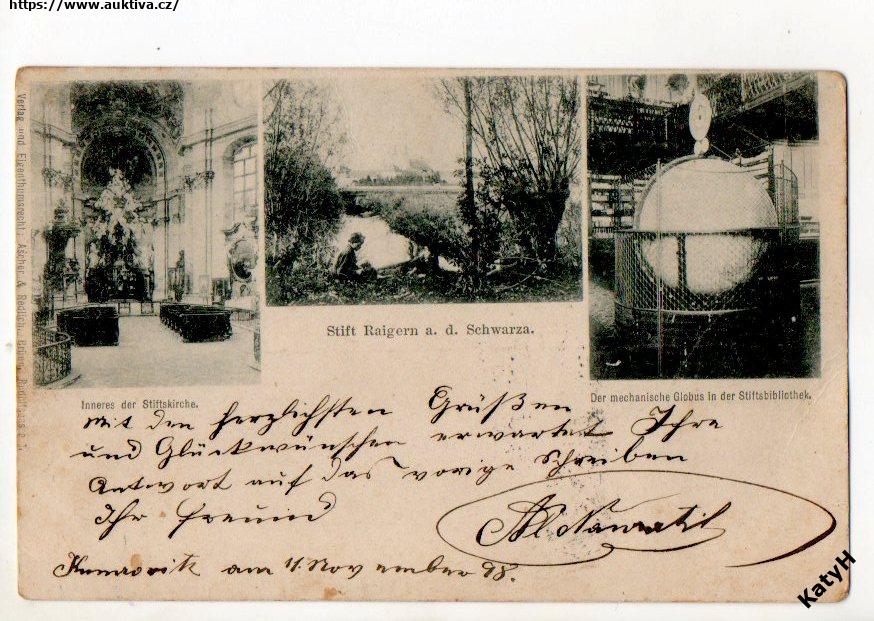 https://www.auktiva.cz/
Verlag und Eigenthumsrecht. Ascher & Redlich, Brünn,
Stift Raigern a. d. Schwarza.
Inneres der Stiftskirche.
Der mechanische Globus in der Stiftsbibliothek.
mit den herzlichsten Grüßen
und Glückwünschen erwartet Ihre
Antwort auf das vorige Schreiben
Ihr Freund
am 11. November 98.
KatyH